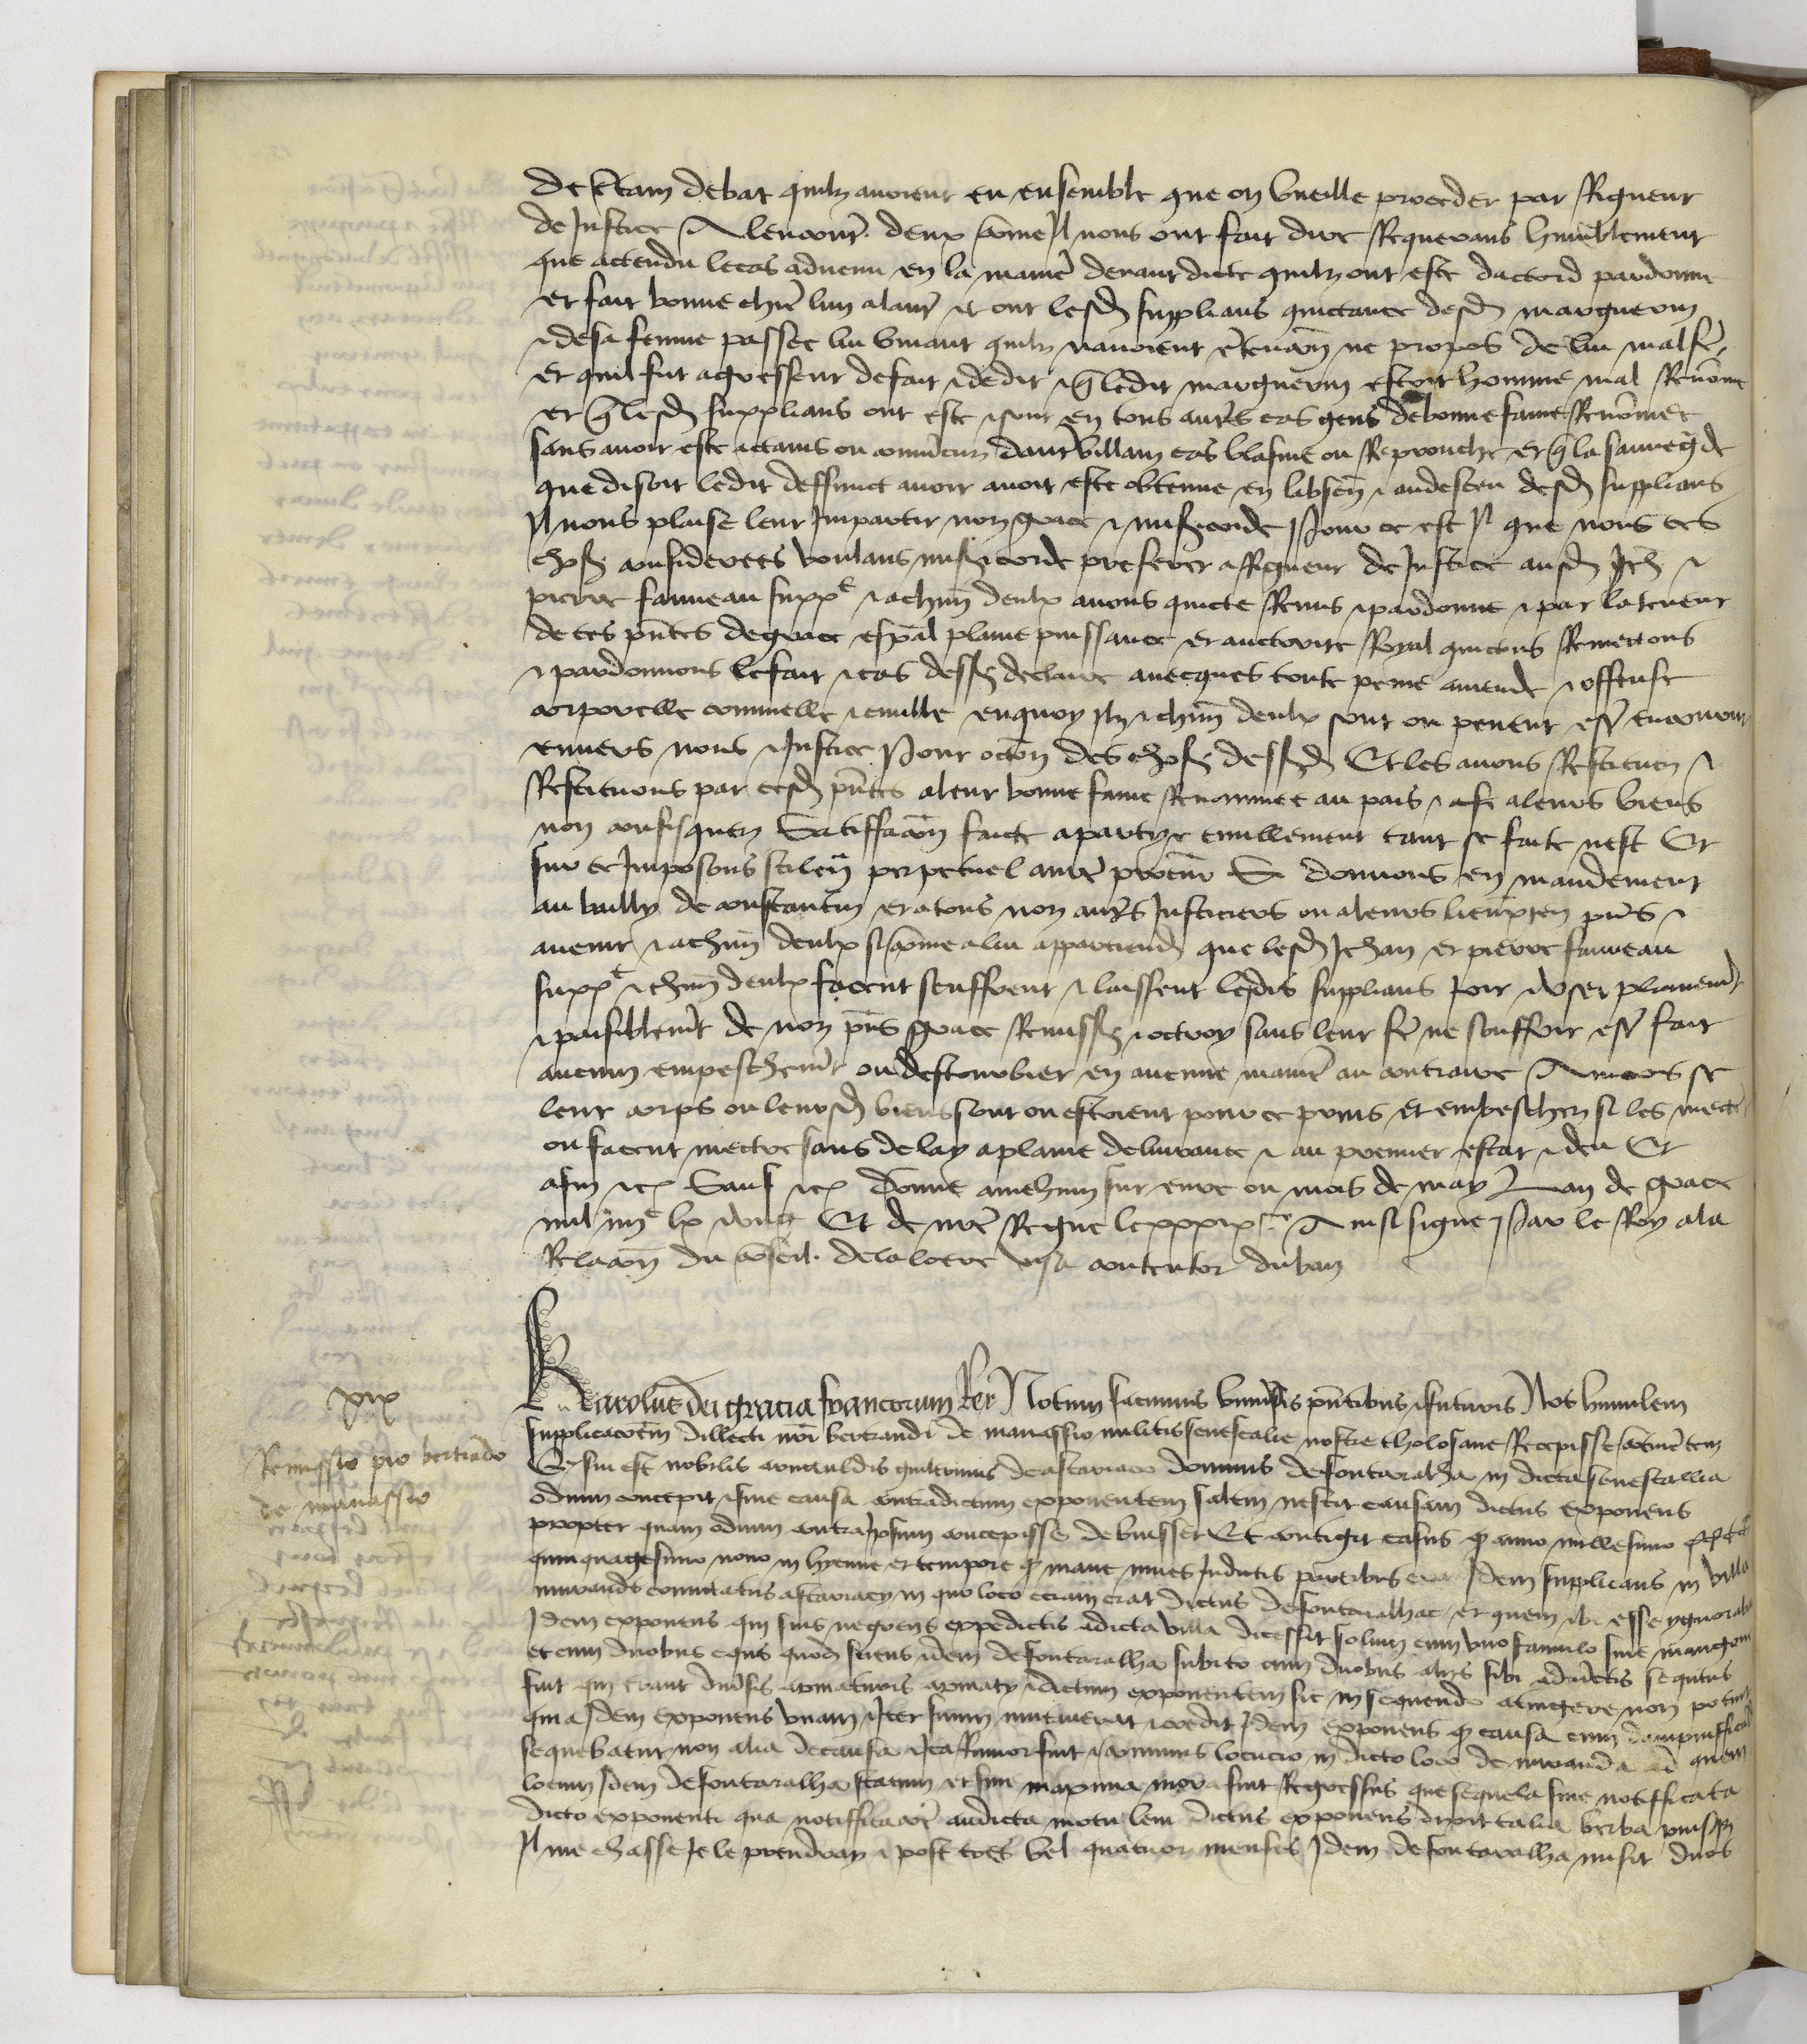 de certain debat quilz avoient eu ensemble que on vueille proceder par Rigueur
de Justice A lencontre deulx comme Il nous ont fait dire Requerans humblement
que actendu le cas advenu en la maniere devant dicte quilz ont este dactord pardonne
et fait bonne chiere lun a lautre et ont lesd supplians quictance desd marguerin
et de sa femme passee lui vivant quilz navoient entencion ne propos de lui mal fere
Et quil fut agresseur de fait et de dit et que ledit marguerin estoit homme mal Renomme
et que lesd supplians ont este et sont en tous autres cas gens de bonne fame Renommee
sans avoir este actains ou convaincuz dautre villain cas blasme ou Reprouche et que la sauvegarde
que disoit ledit deffunct avoir avoit este obtenue en labsence et au desceu desd supplians
Il nous plaise leur Impartir noz grace et misericorde Pour ce est Il que nous ces
choses considerees voulans misericorde preferer a Rigueur de Justice ausd Jeh et
pierre fauveau suppte et a chun deulx avons quicte Remis et pardonne et par la teneur
de ces pntes de grace espal plaine puissance et auctorite Royal quictons Remectons
et pardonnons le fait et cas dessus declaire avecques toute peine amende et offense
corporelle criminelle et civille en quoy Ilz et chun deulx sont ou peuent estre encouruz
envers nous et Justice Pour occon des choses dessusd Et les avons Restituez et
Restituons par cesd pntes a leur bonne fame Renommee au pais et a leurs biens
non confisquez Satiffacion faicte a partye civillement tant se faicte nest Et
sur ce Imposons scilence perpetuel a nre procureur Si donnons en mandement
au bailly de constantin et a tous noz autres Justiciers ou a leurs lieuxten pns et
avenir et a chun deulx si comme a lui appartiendra que lesd Jehan et pierre fauveau
suppte et chun deulx facent seuffrent et laissent lesdis supplians Joir et user plainement
et paisiblemt de noz pns grace Remission et octroy sans leur fere ne souffrir estre fait
aucun empeschemt ou destourbier en aucune maniere au contraire Aincois se
leur corps ou leursd biens sont ou estoient pour ce prins et empeschez si les mecte
ou facent mectre sans delay a plaine delivrance et au premier estat et deu Et
afin etc Sauf etc Donne a mehun sur evre ou mois de may Lan de grace
mil iiiic lx et ung Et de nre Regne le xxxixme Ainsi signe Par le Roy a la
Relacion du conseil. de la loere visa contentor duban
xix
Remissio pro bertrando
de manassio
Karolus dei gracia francorum Rex Notum facimus universis pntibus et futuris Nos humilem
supplicacionem dillecti nri bertrandi de manassio militis senescalie nostre tholosane Recepisse continentem
Quod cum est nobilis vir guillermus de astariaco dominus de fontaralha in dicta senescallia
odium concepit et sine causa contra dictum exponentem saltem nescit causam dictus exponens
propter quam odium contra ipsum concepisse debuisset Et contigit casus quod anno millesimo
quinquagesimo nono in hyeme et tempore quod nives Indictis partibus Idem supplicans in villa
mirande comitatus astariacy in quo loco etiam erat dictus de fontaralhac et quem ibi esse ygnorabat
Idem exponens qui suis negociis expedictis a dicta villa dicessit solum cum uno famulo sine mangon
et cum duobus equis quod sciens idem de fontaralha subito cum duobus aliis sibi adiunctis sequutus
fuit qui erant diversis armaturis armaty et dictum exponentem sic insequendo atingere non potuit
quia Idem exponens unam Iter suum mutaverat et credit Idem exponens quod causa eum
sequebatur non alia de causa et ea Rumor fuit et communis locucio in dicto loco de miranda ad quem
locum Idem de fontaralha statim et sine maxima mora fuit Regressus que sequela sine notifficata
dicto exponenti qua notifficacione audicta motu levi dictus exponens dixit talia verba puis quil
Il me chasse Je le prendray et post tres vel quatuor menses Idem de fontaralha misit duos